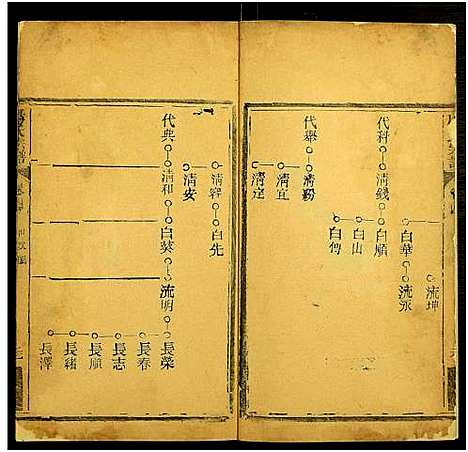 流坤
白華 流永
代科 清錢 白順
白山
白傳
代舉 清粉
清宜
清定
清容 白先
清安
代典 清和 白葵 流明 長榮
長春
長志
長順
長緒
長澤